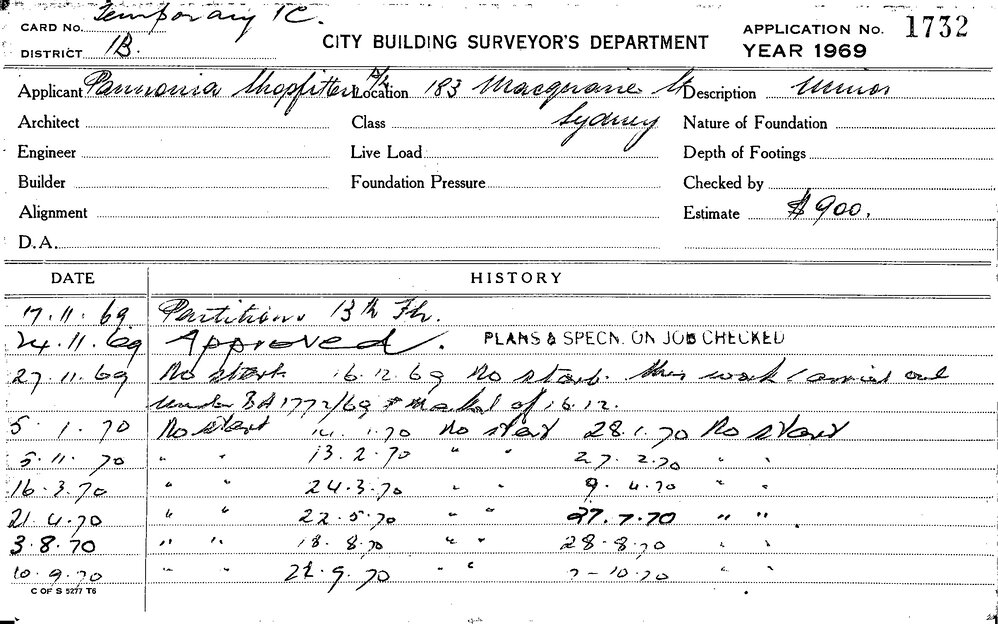 CARD No. Temporary TC.
CITY BUILDING SURVEYOR'S DEPARTMENT
APPLICATION No. 1732
DISTRICT 1B.
YEAR 1969
Applicant Pannonia Shopfitters P/L Location 183 Macquarie St Description Minor
Architect Class Sydney Nature of Foundation
Engineer Live Load Depth of Footings
Builder Foundation Pressure Checked by
Alignment Estimate $900.
D.A.
DATE HISTORY
17.11.69 Partitions 13th Flr.
24.11.69 Approved. PLANS & SPECN. ON JOB CHECKED
27.11.69 No start. 16.12.69 No start. this work carried out
under BA 1772/69 of 16.12.
5.1.70 No start 14.1.70 No start 28.1.70 No start
5.11.70 " " 13.2.70 " " 27.2.70 " "
16.3.70 " " 24.3.70 " " 9.4.70 " "
21.4.70 " " 22.5.70 " " 27.7.70 " "
3.8.70 " " 18.8.70 " " 28.8.70 " "
10.9.70 " " 22.9.70 " " 7-10.70 " "
C OF S 5277 T6